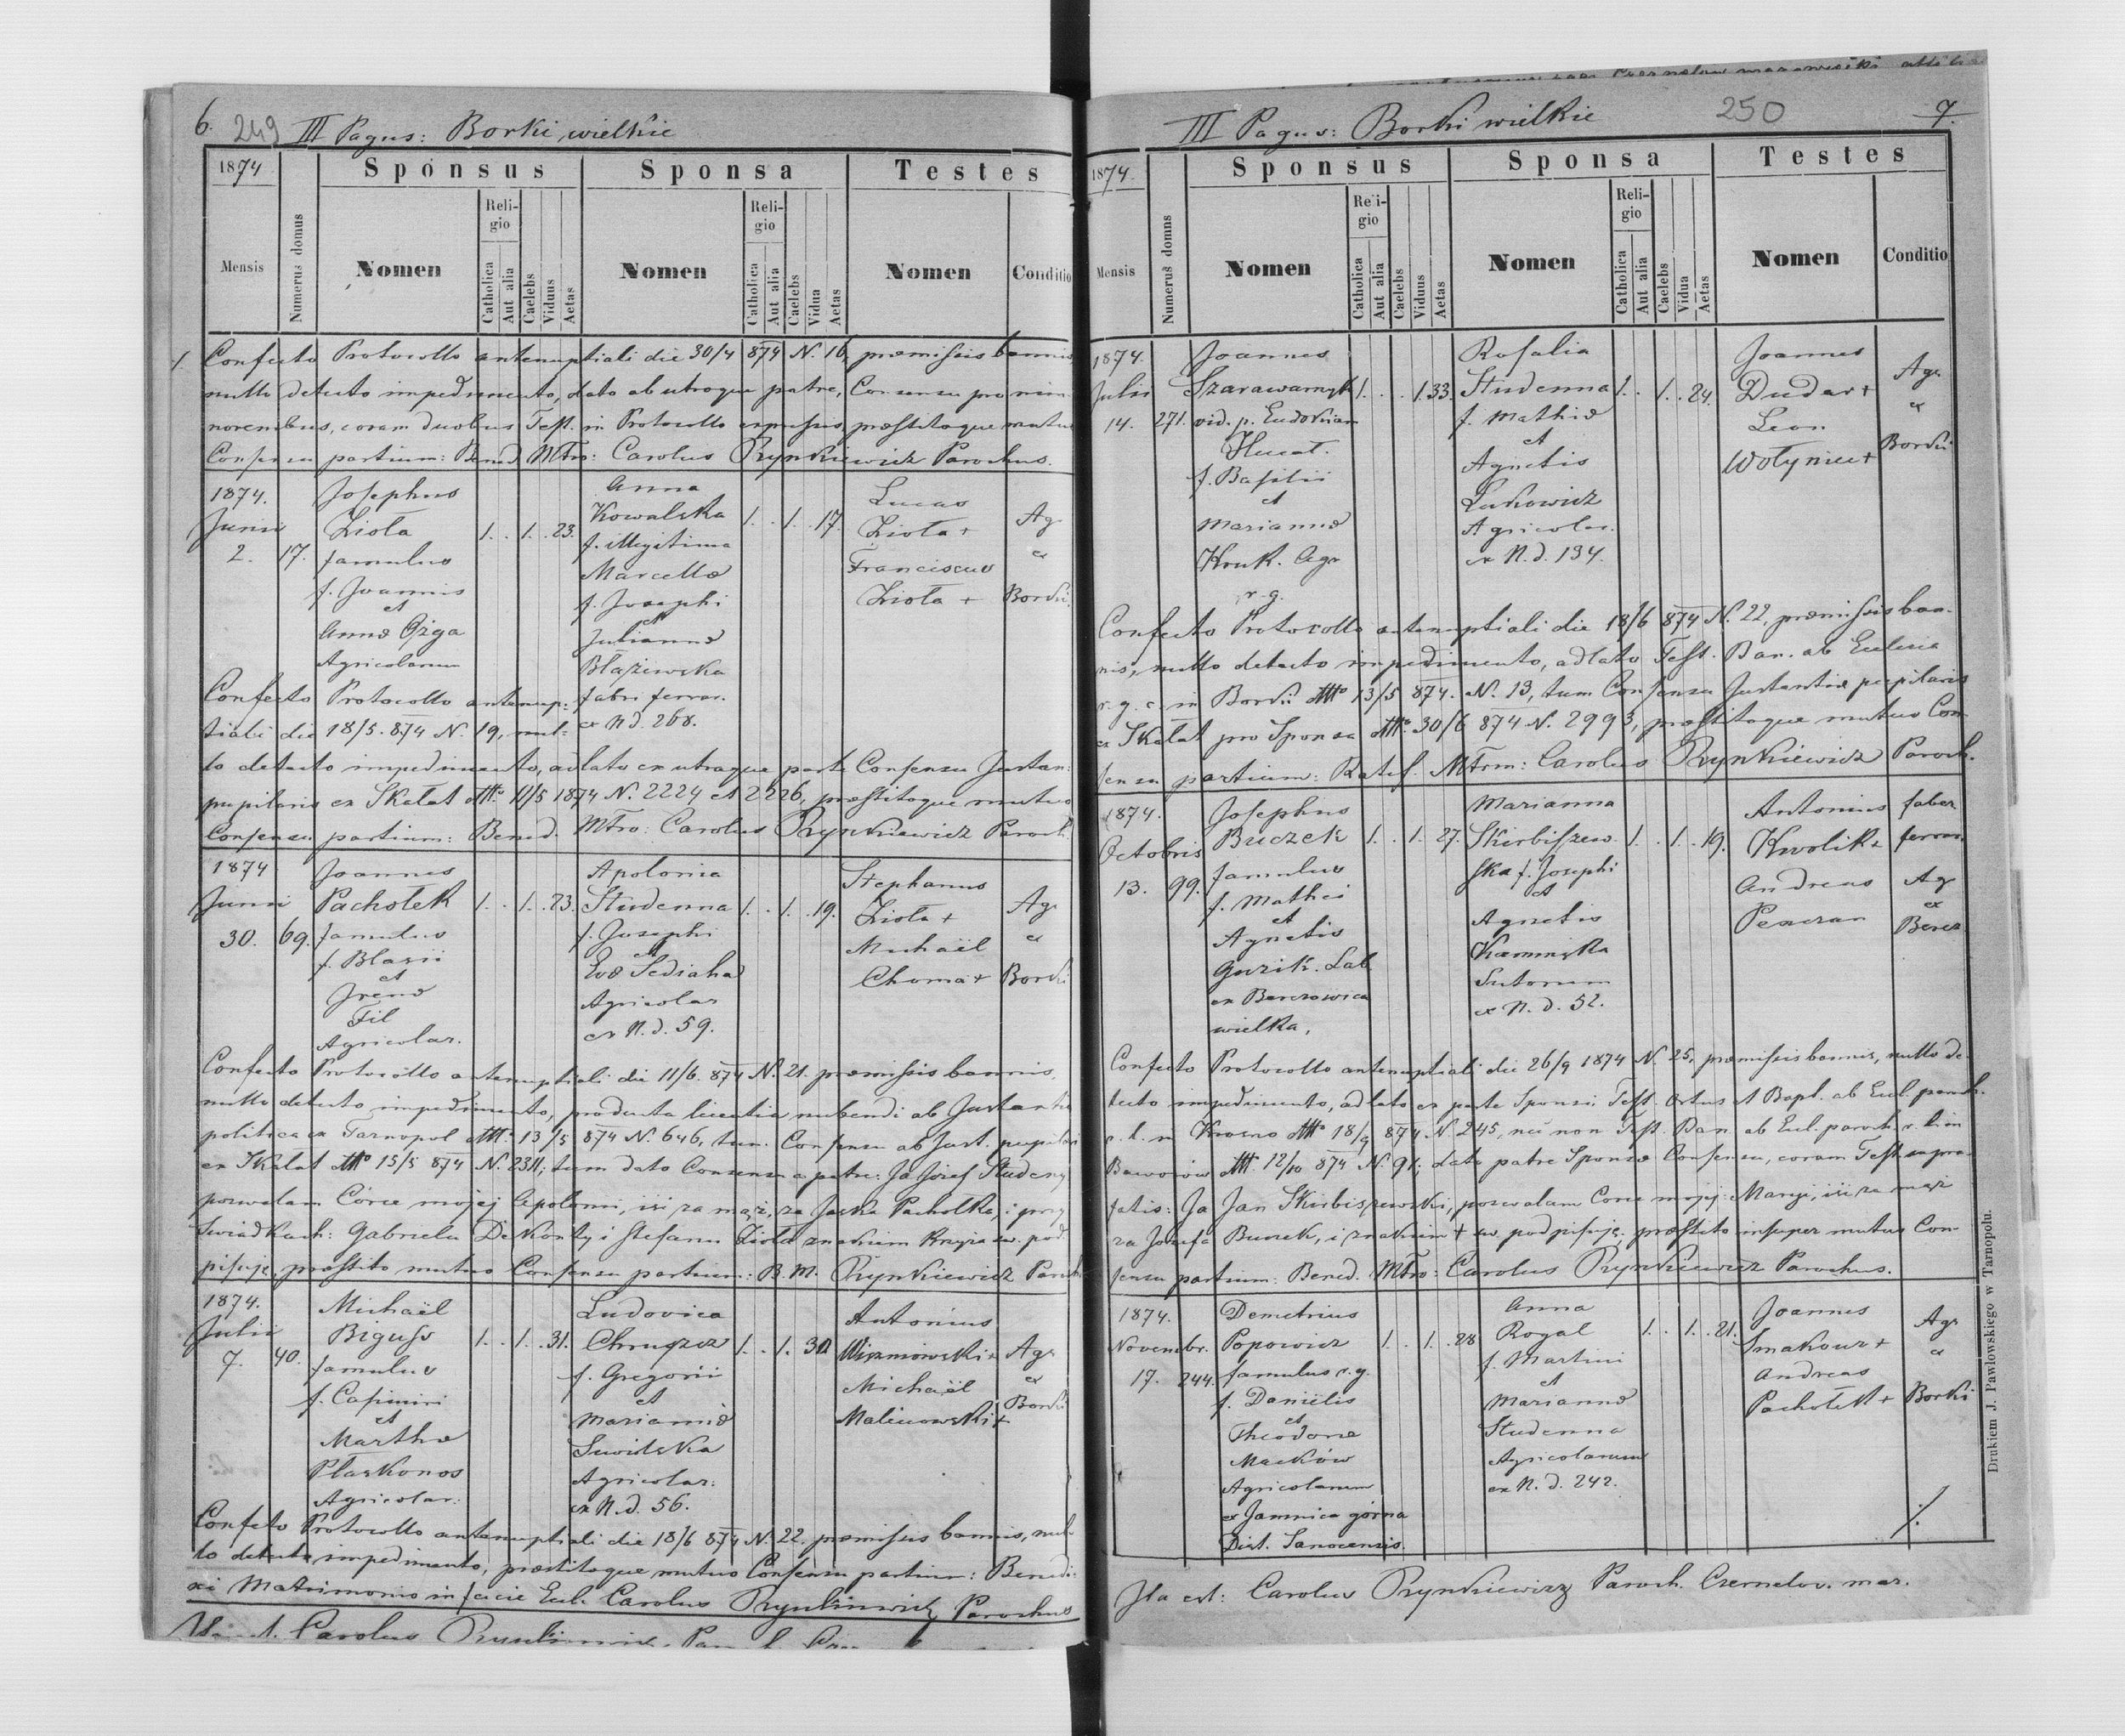 6. 249 III Pagus: Borki wielkie
1874
Sponsus
Sponsa
Testes
Mensis
Numerus domus
Nomen
Religio
Catholica
Aut alia
Caelebs
Viduus
Aetas
Nomen
Religio
Catholica
Aut alia
Caelebs
Vidua
Aetas
Nomen
Conditio
1. Confecto Protocollo antenuptiali die 30/4 874 N. 16, præmissis bannis
nullo detecto impedimento, dato ab utroque patre, Consensu pro min
norenibus, coram duobus Test. in Protocollo expressis, præstitoque mutuo
Consensu partium: Bened. Mtro: Carolus Rynkiewicz Parochus.
1874.
Junii
2.
17.
Josephus
Zioła
famulus
f. Joannis
et
Annæ Ożga
Agricolarum
1. . 1. . 23.
Anna
Kowalska
f. illegitima
Marcellæ
f. Josephi
et
Juliannæ
Błażewska
fabri ferrar.
ex N d. 268.
1. . 1. . 17.
Lucas
Zioła +
Franciscus
Zioła +
Ag
ex
Borki
Confecto Protocollo antenup:
tiali die 18/5. 874 N. 19, nul:
lo detecto impedimento, adlato ex utraque parte Consensu Justan:
pupilaris ex Skałat dtto 11/5 1874 N. 2224 et 2226, præstitoque mutuo
Consensu partium: Bened. Mtro: Carolus Rynkiewicz Paroch.
1874
Junii
30.
69.
Joannes
Pachołek
famulus
f. Blasii
et
Irenæ
Fil
Agricolar.
1. . 1. . 23.
Apolonia
Studenna
f. Josephi
et
Evæ Sediaha
Agricolar
ex N. d. 59.
1. . 1. . 19.
Stephanus
Zioła +
Michaël
Choma +
Agr
ex
Borki
Confecto Protocollo antenuptiali die 11/6. 874 N. 21. præmissis bannis,
nullo detecto impedimento, producta licentia nubendi ab Justantia
politica ex Tarnopol dtto 13/5 874 N. 646, tum Consensu ab Just. pupilari
ex Skałat dtto 15/5 874 N. 2311, tum dato Consensu a patre: Ja Józef Studeny
pozwalam Córce mojej Apolonii, iść za mąż, za Jaśka Pachołka, i przy
Świadkach: Gabrielu Dekonty i Stefanu Zioła znakiem Krzyża św. pod
pisuję, præstito mutuo Consensu partium: B. M. Rynkiewicz Paroch
1874.
Julii
7.
40.
Michaël
Biguss
famulus
f. Casimiri
et
Marthæ
Płaskonos
Agricolar:
1. . 1. . 31.
Ludovica
Chruszcz
f. Gregorii
et
Mariannæ
Suwilska
Agricolar:
ex N. d. 56.
1. . 1. 30
Antonius
Wiszniowski +
Michaël
Malinowski +
Agr
ex
Borki
Confecto Protocollo antenuptiali die 18/6 874 N. 22. præmissis bannis, nul
lo detecto impedimento, præstitoque mutuo Consensu partium: Benedi:
xi Matrimonio in facie Eccl. Carolus Rynkiewicz Parochus
III Pagus: Borki wielkie 250 7.
1874.
Sponsus
Sponsa
Testes
Mensis
Numerus domus
Nomen
Religio
Catholica
Aut alia
Caelebs
Viduus
Aetas
Nomen
Religio
Catholica
Aut alia
Caelebs
Vidua
Aetas
Nomen
Conditio
1874.
Julii
14.
271.
Joannes
Szarawarnyk
vid. p. Eudokiam
Hucał.
f. Basilii
et
Mariannæ
Kruk. Agr
r. g.
1. . . 1. 33.
Rosalia
Studenna
f. Mathiæ
et
Agnetis
Lukowicz
Agricolar.
ex N. d. 134.
1. . 1. . 24.
Joannes
Dudar +
Leon
Wołyniec +
Agr
ex
Borki
Confecto Protocollo antenuptiali die 18/6 874 N. 22, præmissis ban-
nis, nullo detecto impedimento, adlato Test. Ban. ab Ecclesia
r. g. c. in Borki dtto 13/5 874. N. 13, tum Consensu Justantiæ pupilaris
ex Skałat pro Sponsa dtto 30/6 874 N. 2993, præstitoque mutuo Con
sensu partium: Ratif. Mtrm: Carolus Rynkiewicz Paroch.
1874.
Octobris
13.
99.
Josephus
Buczek
famulus
f. Mathei
et
Agnetis
Guzik. Lab
ex Berezowica
wielka.
1. . 1. 27.
Marianna
Skirbiszew-
ska f. Josephi
et
Agnetis
Kaminska
Sutorum
ex N. d. 52.
1. . 1. . 19.
Antonius
Krolik +
Andreas
Penczar
faber
ferrar.
Ag
ex
Berez
Confecto Protocollo antenuptiali die 26/9 1874 N. 25, præmissis bannis, nullo de
tecto impedimento, adlato ex parte Sponsi Test. Ortus et Bapt. ab Eccl. paroch.
r. l. in Krosno dtto 18/9 874 N 245, nec non Test. Ban. ab Eccl. paroch. r. l. in
Baworów dtto 12/10 874 N. 91, dato patre Sponsæ Consensu, coram Test. supra
fatis: Ja Jan Skirbiszewski, pozwalam Corce mojej Maryi, iść za mąż
za Józefa Buczek, i znakiem + św. podpisuję, præstito insuper mutuo Con
sensu partium: Bened. Mtro: Carolus Rynkiewicz Parochus.
1874.
Novembr.
17.
244.
Demetrius
Popowicz
famulus r. g.
f. Daniëlis
et
Theodoræ
Macków
Agricolarum
ex Jamnica górna
Dist. Sanocensis.
1. . 1. . 28
Anna
Rogal
f. Martini
et
Mariannæ
Studenna
Agricolarum
ex N. d. 242.
1. . 1. . 21.
Joannes
Smakouz +
Andreas
Pachołek +
Agr
ex
Borki
Ita est: Carolus Rynkiewicz Paroch. Czernelov. maz.
Drukiem J. Pawłowskiego w Tarnopolu.